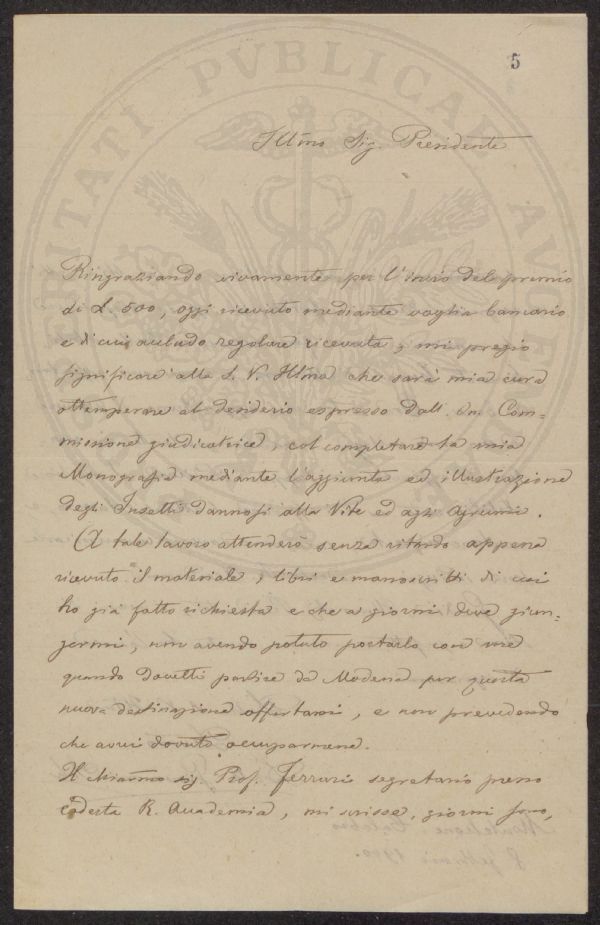 5
Ill͞mo Sig. Presidente
Ringraziando vivamente per l'invio del premio
di L. 500, oggi ricevuto mediante vaglia bancario
e di cui accludo regolare ricevuta, mi pregio
significare alla S. V. Ill͞ma che sarà mia cura
ottemperare al desiderio espresso dall' On. Com=
missione giudicatrice, col completare la mia
Monografia mediante l'aggiunta ed illustrazione
degli Insetti dannosi alla Vite ed agli Agrumi.
A tale lavoro attenderò senza ritardo appena
ricevuto il materiale, libri e manoscritti di cui
ho già fatto richiesta e che a giorni deve giun=
germi, non avendo potuto portarlo con me
quando dovetti partire da Modena per questa
nuova destinazione offertami, e non prevedendo
che avrei dovuto occuparmene.
Il chiar͞mo sig. Prof. Ferrari segretario presso
codesta R. Accademia, mi scrisse, giorni sono,
PVBLICAE